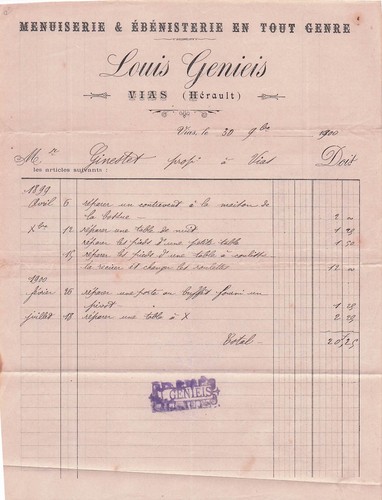 MENUISERIE & ÉBÉNISTERIE EN TOUT GENRE
Louis Genieis
VIAS (Hérault)
Vias, le 30 9bre 1900
M. r Ginestet propre à Vias Doit
les articles suivants :
1899
Avril 6 réparer un contrevent à la maison de
la 2 "
Xbre 12 réparer une table de nuit 1 25
réparer les pieds d'une petite table 1 50
15 réparer les pieds d'une table à roulettes
la et changer les roulettes 12 "
1900
février 26 réparer une porte au buffet fourni un
pivot 1 25
juillet 18 réparer une table à X 2 25
Total 20,25
L. GENIEIS